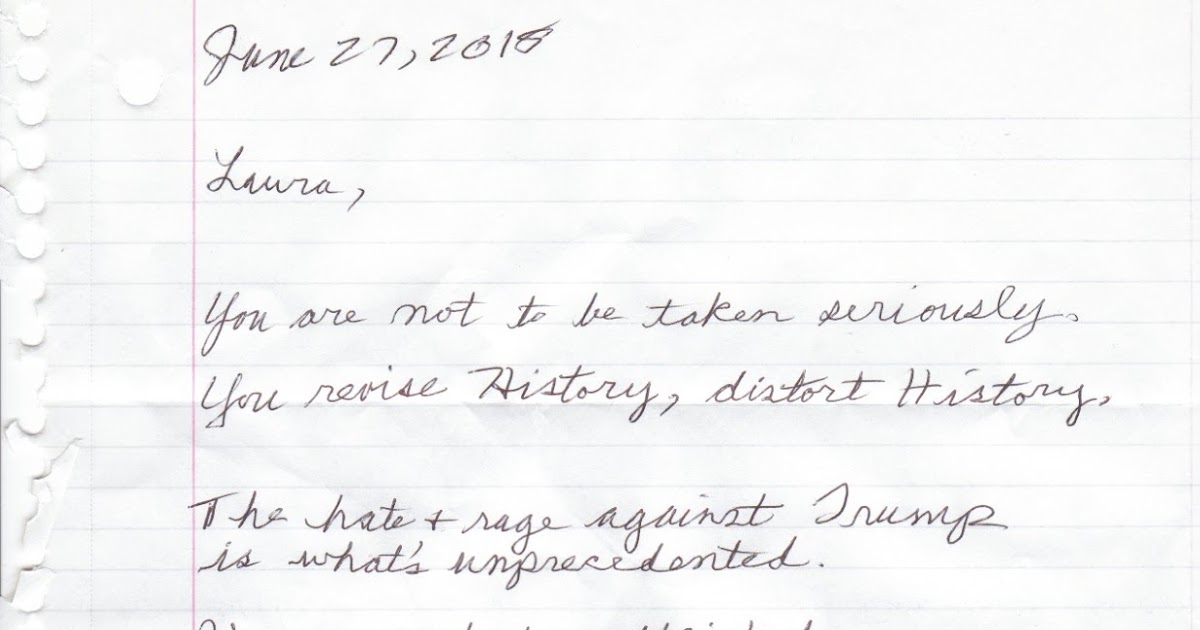 June 27, 2018
Laura,
You are not to be taken seriously.
You revise History, distort History,
The hate + rage against Trump
is what's unprecedented.